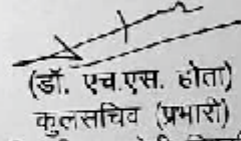 (डॉ. एच.एस. होता)
कुलसचिव (प्रभारी)